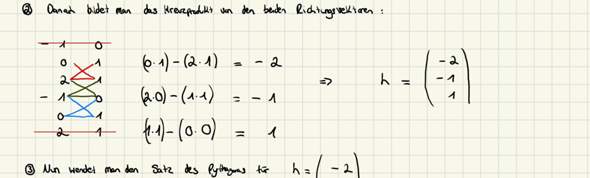 ② Danach bildet man das Kreuzprodukt von den beiden Richtungsvektoren :
1 0
0 1 (0·1) - (2·1) = - 2
2 1 ⇒ h = ( -2 -1 1 )
- 1 0 (2·0) - (1·1) = - 1
0 1
2 1 (1·1) - (0·0) = 1
③ Nun wendet man den Satz des Pythagoras für h = ( -2 )